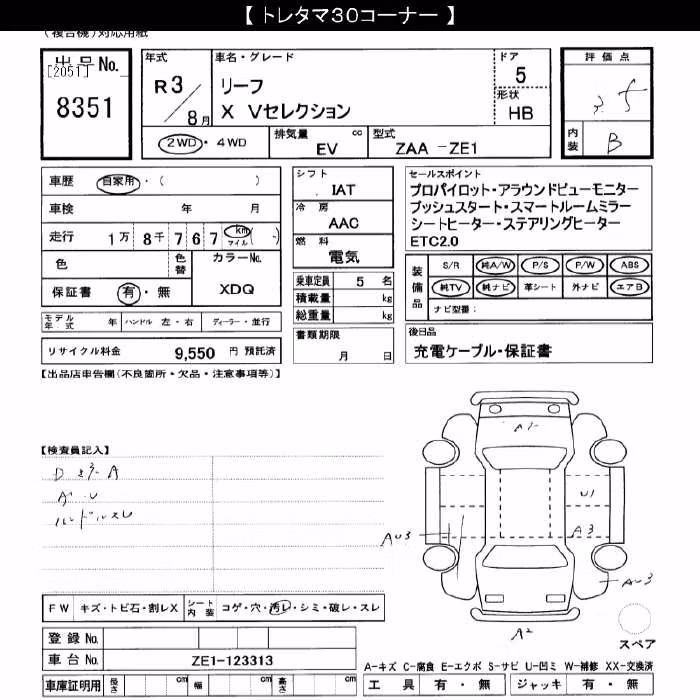 【 トレタマ30コーナー 】
(複合機)対応用紙
出品No.
[2051]
8351
年式
R3/8月
車名・グレード
リーフ
X Vセレクション
ドア
5
形状
HB
評価点
内装
B
2WD・4WD
排気量
cc
EV
型式
ZAA-ZE1
車歴
自家用・( )
車検 年 月
走行 1万 8千 7 6 7 km マイル ( )
色
色替
カラーNo.
XDQ
保証書 有・無
モデル年式 年 ハンドル 左・右 ディーラー・並行
リサイクル料金 9,550 円 預託済
シフト
IAT
冷房
AAC
燃料
電気
乗車定員 5 名
積載量 kg
総重量 kg
書類期限
月 日
セールスポイント
プロパイロット・アラウンドビューモニター
プッシュスタート・スマートルームミラー
シートヒーター・ステアリングヒーター
ETC2.0
装備品
S/R 純A/W P/S P/W ABS
純TV 純ナビ 革シート 外ナビ エアB
ナビ型番:
後日品
充電ケーブル・保証書
【出品店申告欄(不良箇所・欠品・注意事項等)】
【検査員記入】
A・U
ハンドルスレ
A1
U1
A3
AU3
AU3
A2
スペア
FW キズ・トビ石・割レX シート内装 コゲ・穴・汚レ・シミ・破レ・スレ
登録 No.
車台 No. ZE1-123313
車庫証明用 長さ cm 幅 cm 高さ cm
A-キズ C-腐食 E-エクボ S-サビ U-凹ミ W-補修 XX-交換済
工具 有・無 ジャッキ 有・無